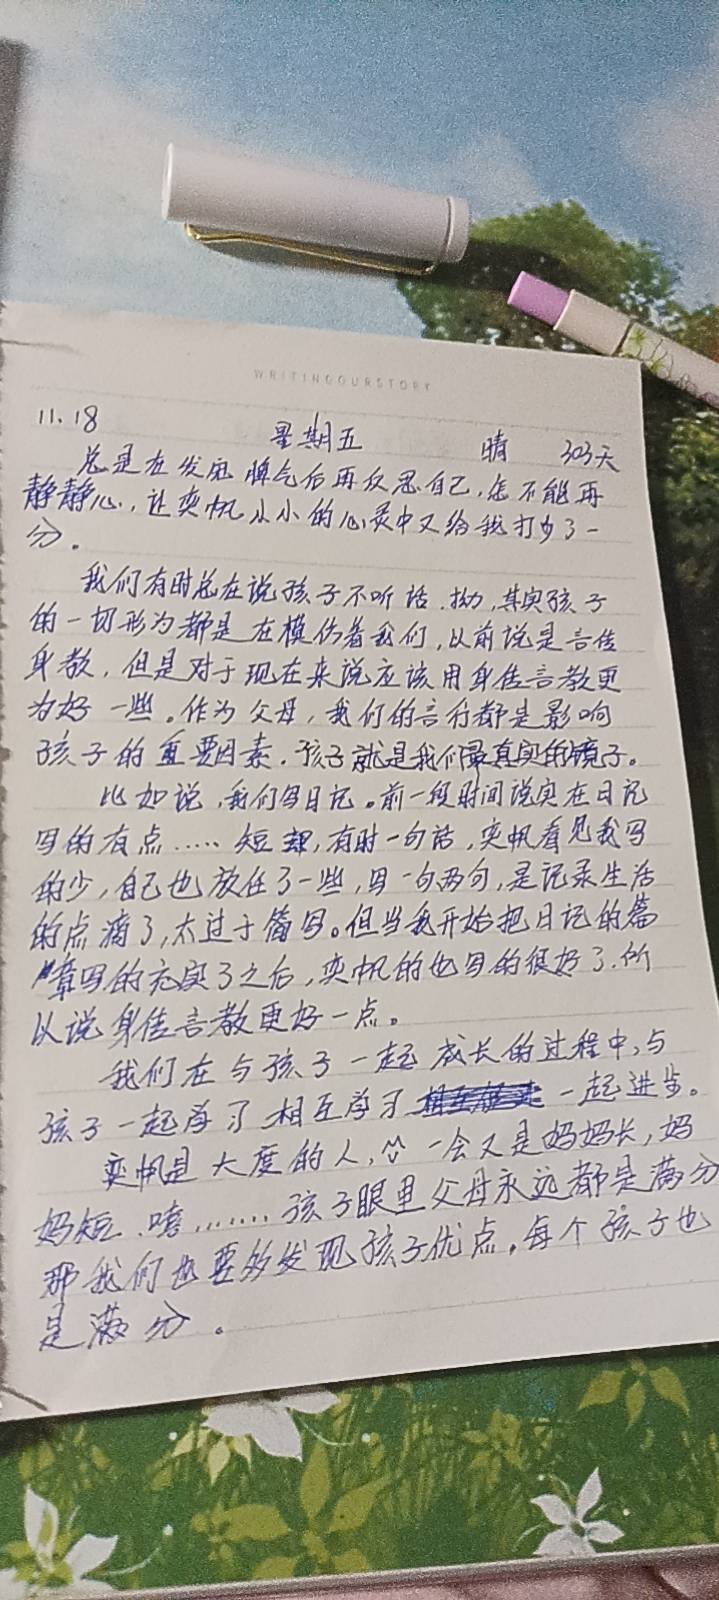 WRITINGOURSTORY
11.18 星期五 晴 303天
总是在发完脾气后再反思自己,怎不能再
静静心,让奕帆小小的心灵中又给我打少了一
分。
我们有时总在说孩子不听话.拗,其实孩子
的一切形为都是在模仿着我们,以前说是言传
身教,但是对于现在来说应该用身传言教更
为好一些。作为父母,我们的言行都是影响
孩子的重要因素.孩子就是我们最真实的镜子。
比如说,我们写日记。前一段时间说实在日记
写的有点.....短,有时一句话,奕帆看见我写
的少,自己也放任了一些,写一句两句,是记录生活
的点滴了,太过于简写。但当我开始把日记的篇
章写的充实了之后,奕帆的也写的很好了.所
以说身传言教更好一点。
我们在与孩子一起成长的过程中,与
孩子一起学习相互学习一起进步。
奕帆是大度的人,一会又是妈妈长,妈
妈短.嘻.......孩子眼里父母永远都是满分
那我们也要多发现孩子优点.每个孩子也
是满分。